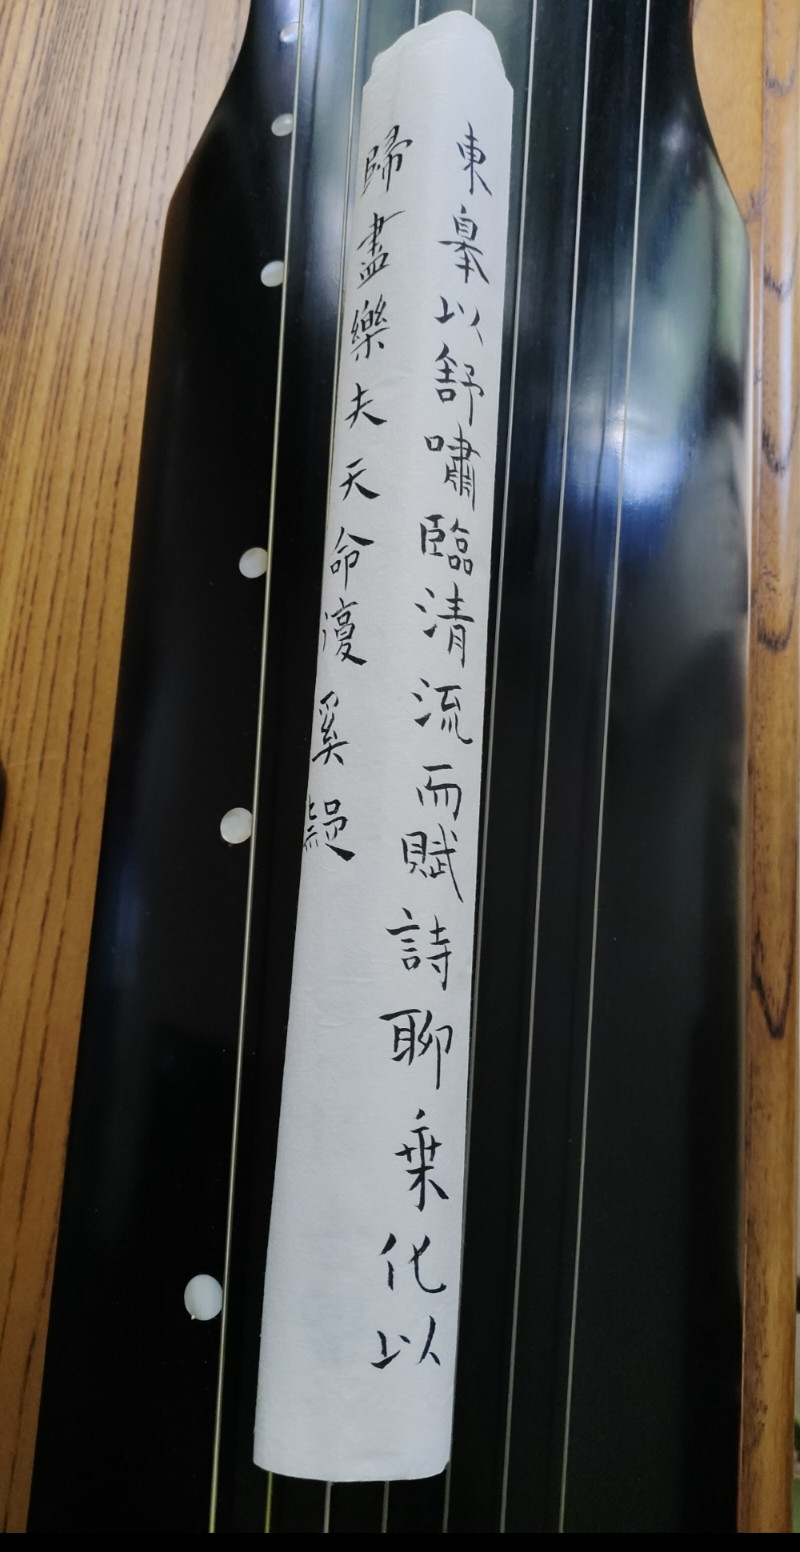 東皋以舒嘯臨清流而賦詩聊乗化以
歸盡樂夫天命復奚疑